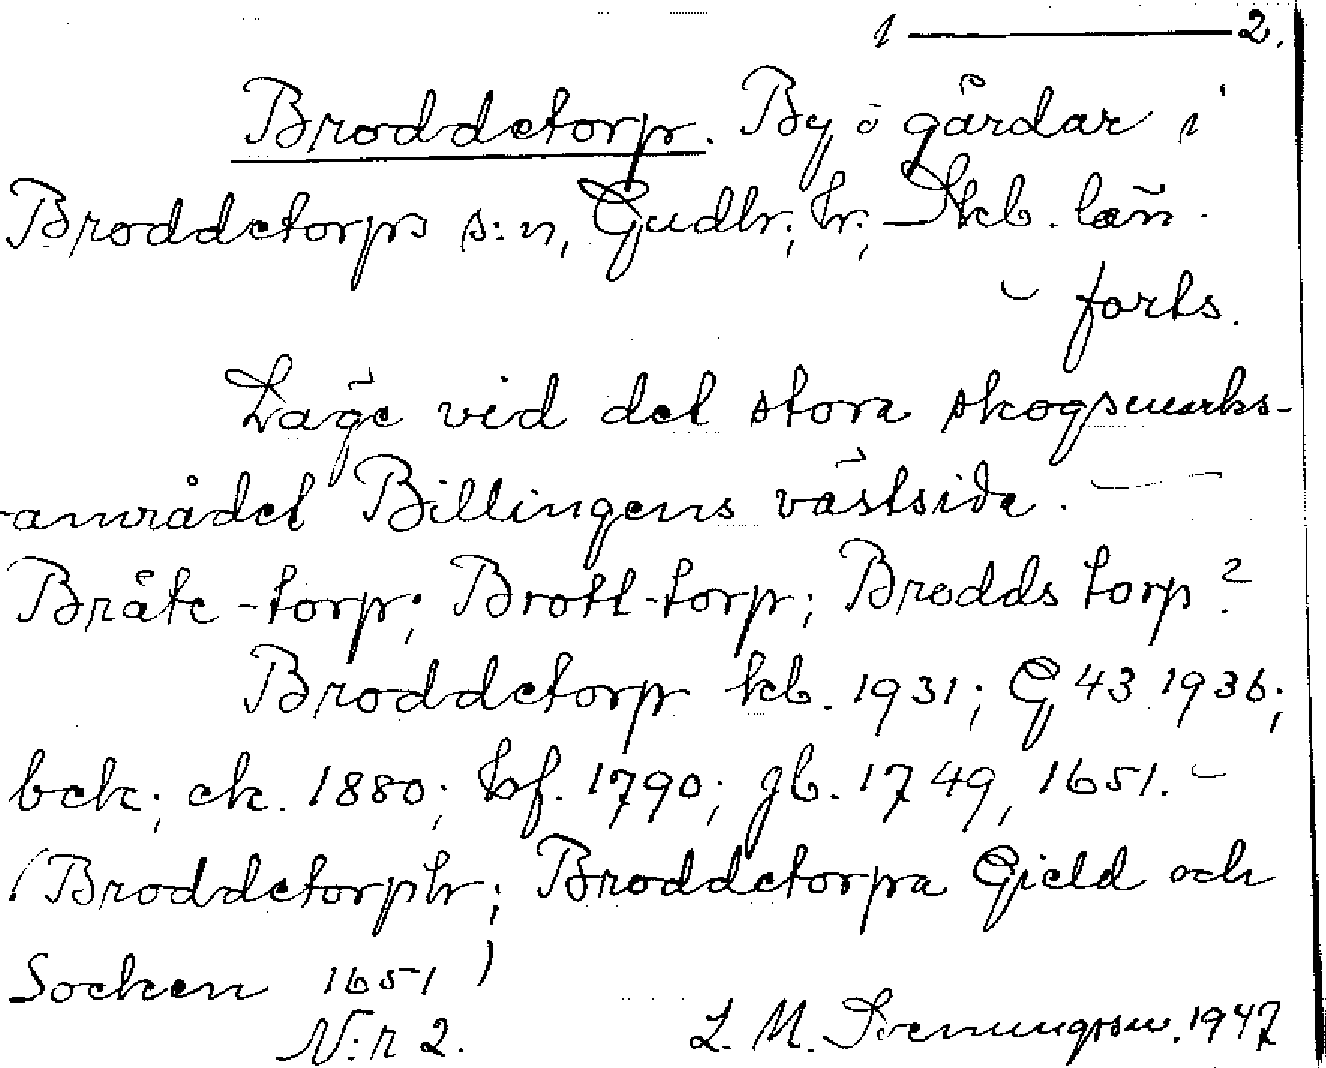 1 — 2.
Broddetorp. By o gårdar i
Broddetorps s:n, Gudh; hr; Skb. län.
– forts.
Läge vid det stora skogsmarks-
området Billingens västsida. —
Bråte-torp; Brott-torp; Brodds torp?
Broddetorp kb. 1931; G 43 1936;
bek; ek. 1880; hf. 1790; jb. 1749, 1651. –
(Broddetorph; Broddetorpa Gield och
Socken 1651)
N:r 2. L. M. Svenungsson. 1947